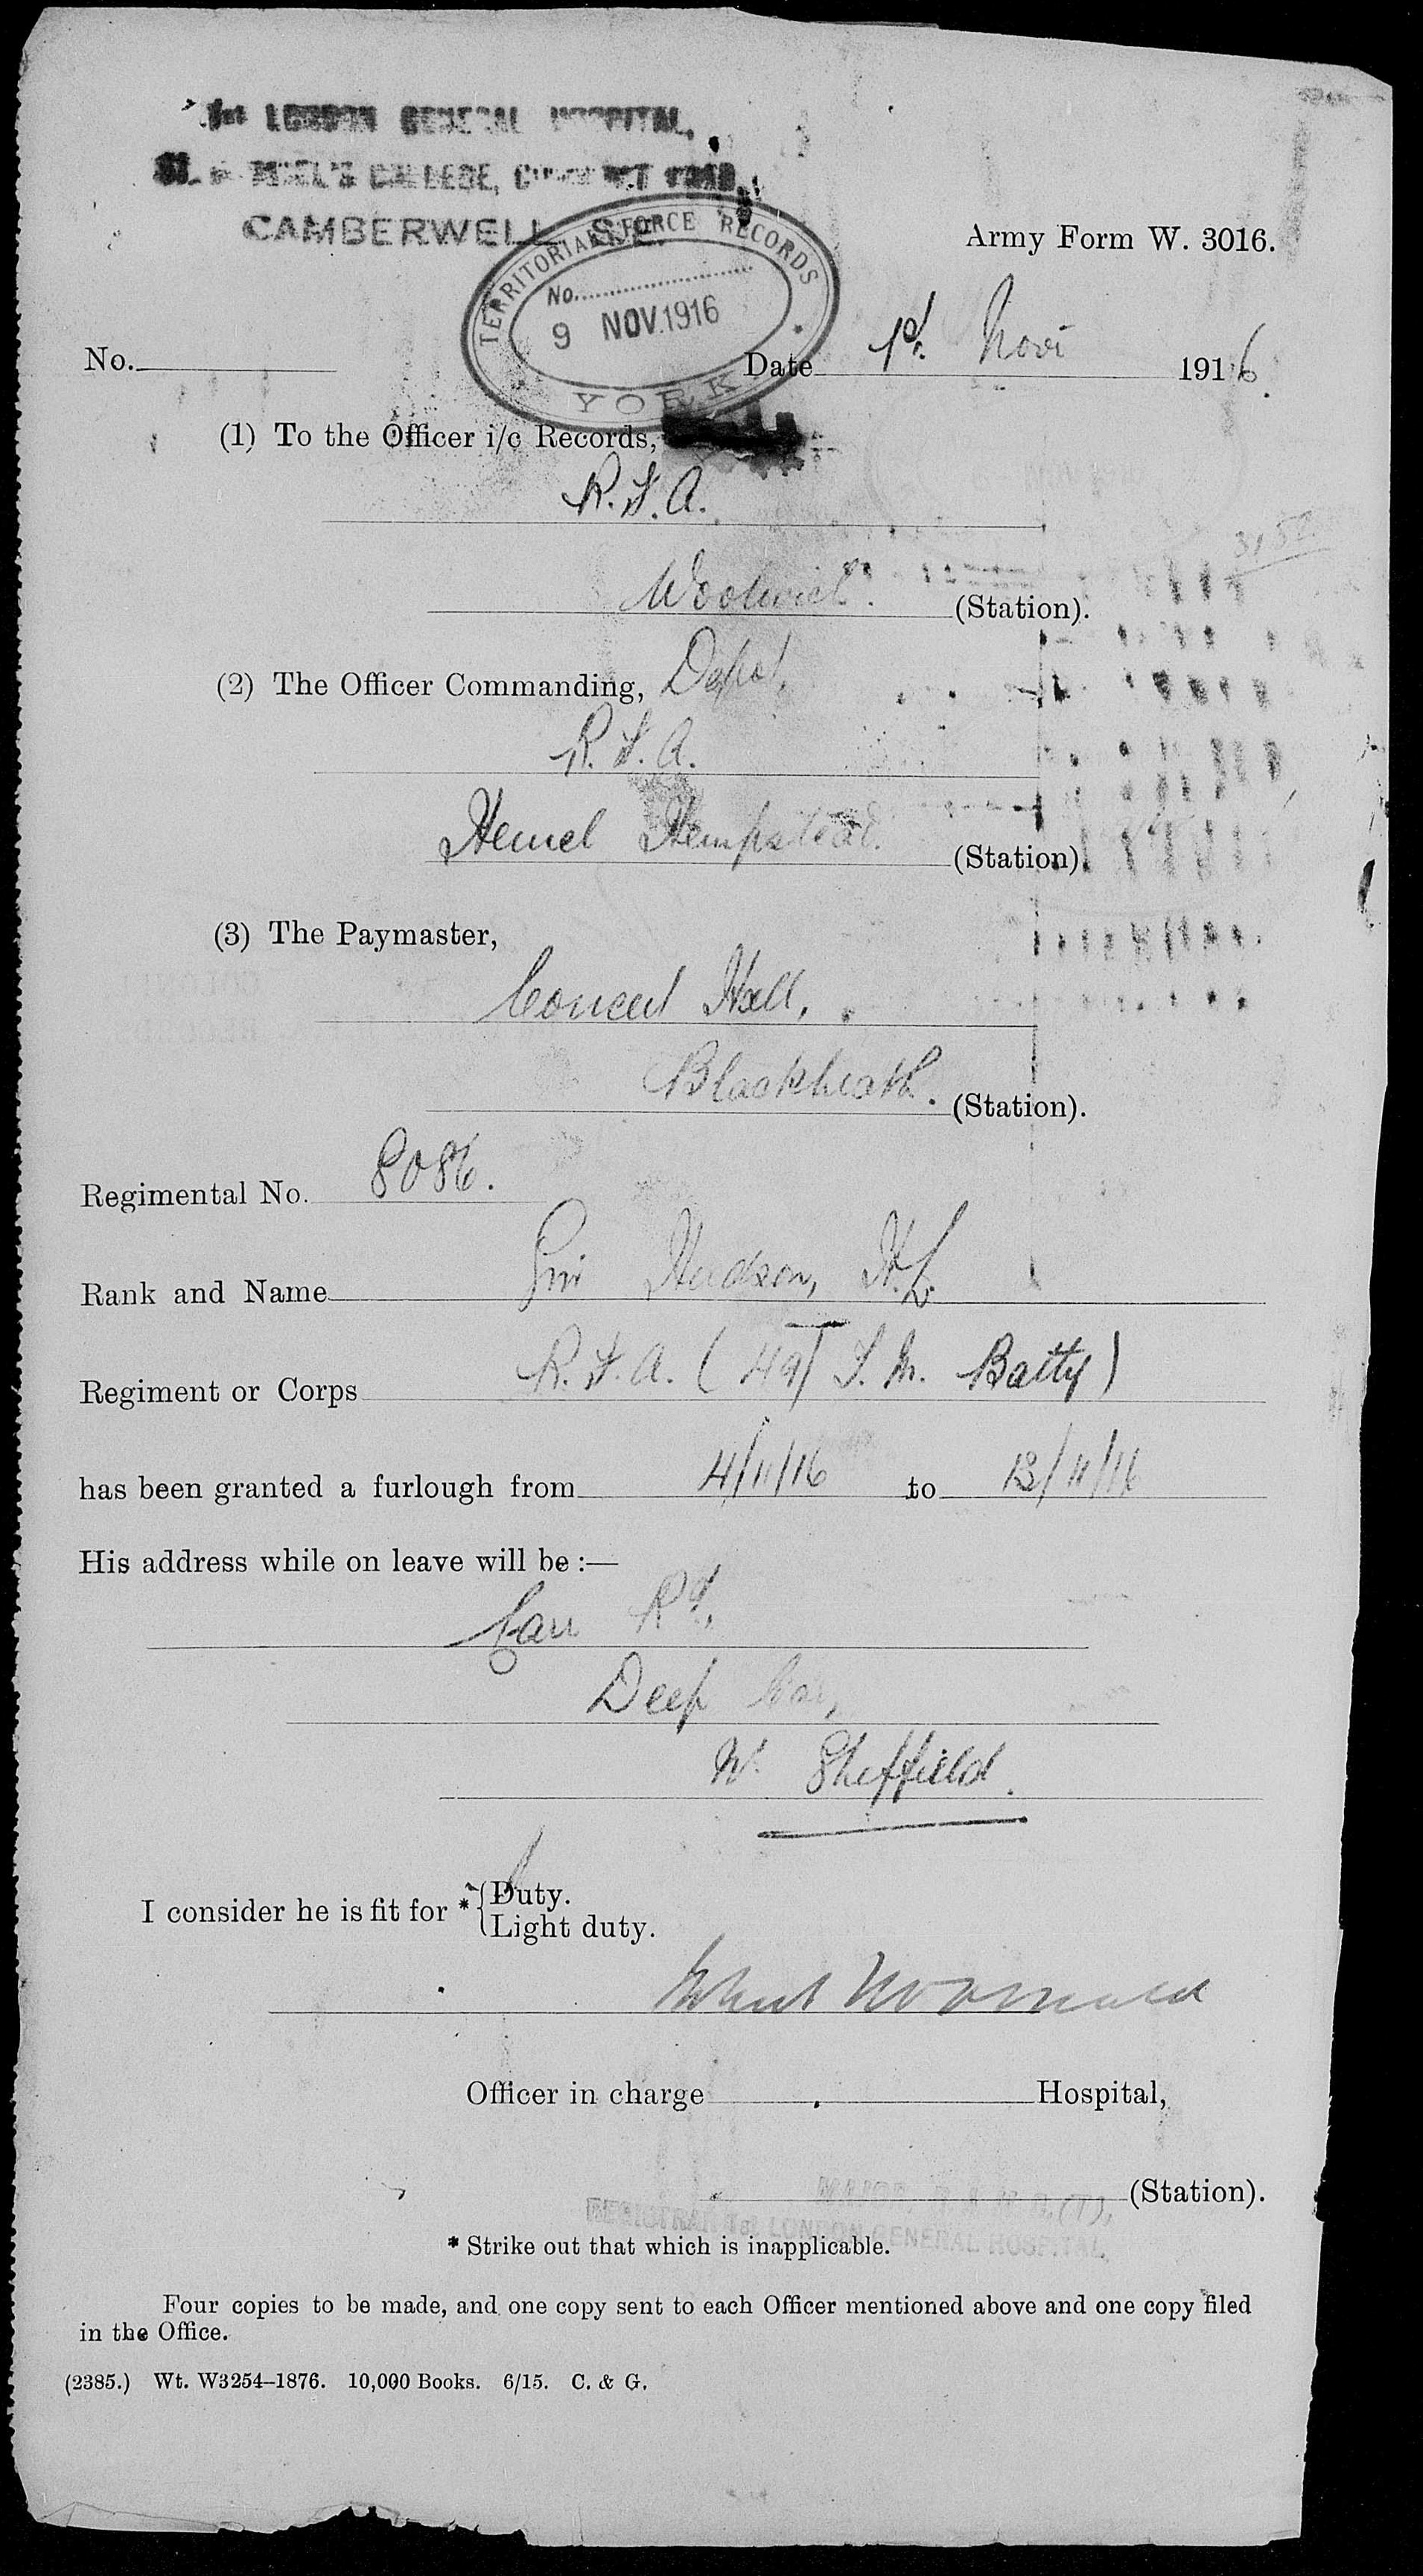 1st LONDON GENERAL HOSPITAL,
COLLEGE,
CAMBERWELL S.E.
TERRITORIAL FORCE RECORDS
No.
9 NOV. 1916
YORK
Army Form W. 3016.
No. Date 1st. Nov 1916.
(1) To the Officer i/c Records,
R.F.A.
Woolwich. (Station).
31, 52
(2) The Officer Commanding, Depot,
R.F.A.
Hemel Hempstead. (Station).
(3) The Paymaster,
Concert Hall,
Blackheath. (Station).
Regimental No. 8086.
Rank and Name Gnr Hudson, H.L.
Regiment or Corps R.F.A. (49/T.M. Batty)
has been granted a furlough from 4/11/16 to 13/11/16
His address while on leave will be :—
Carr Rd.,
Deep Car,
Nr. Sheffield.
I consider he is fit for * {Duty.
Light duty.
Officer in charge Hospital,
(Station).
MAJOR R.A.M.C.(T),
REGISTRAR 1st LONDON GENERAL HOSPITAL.
* Strike out that which is inapplicable.
Four copies to be made, and one copy sent to each Officer mentioned above and one copy filed
in the Office.
(2385.) Wt. W3254–1876. 10,000 Books. 6/15. C. & G.